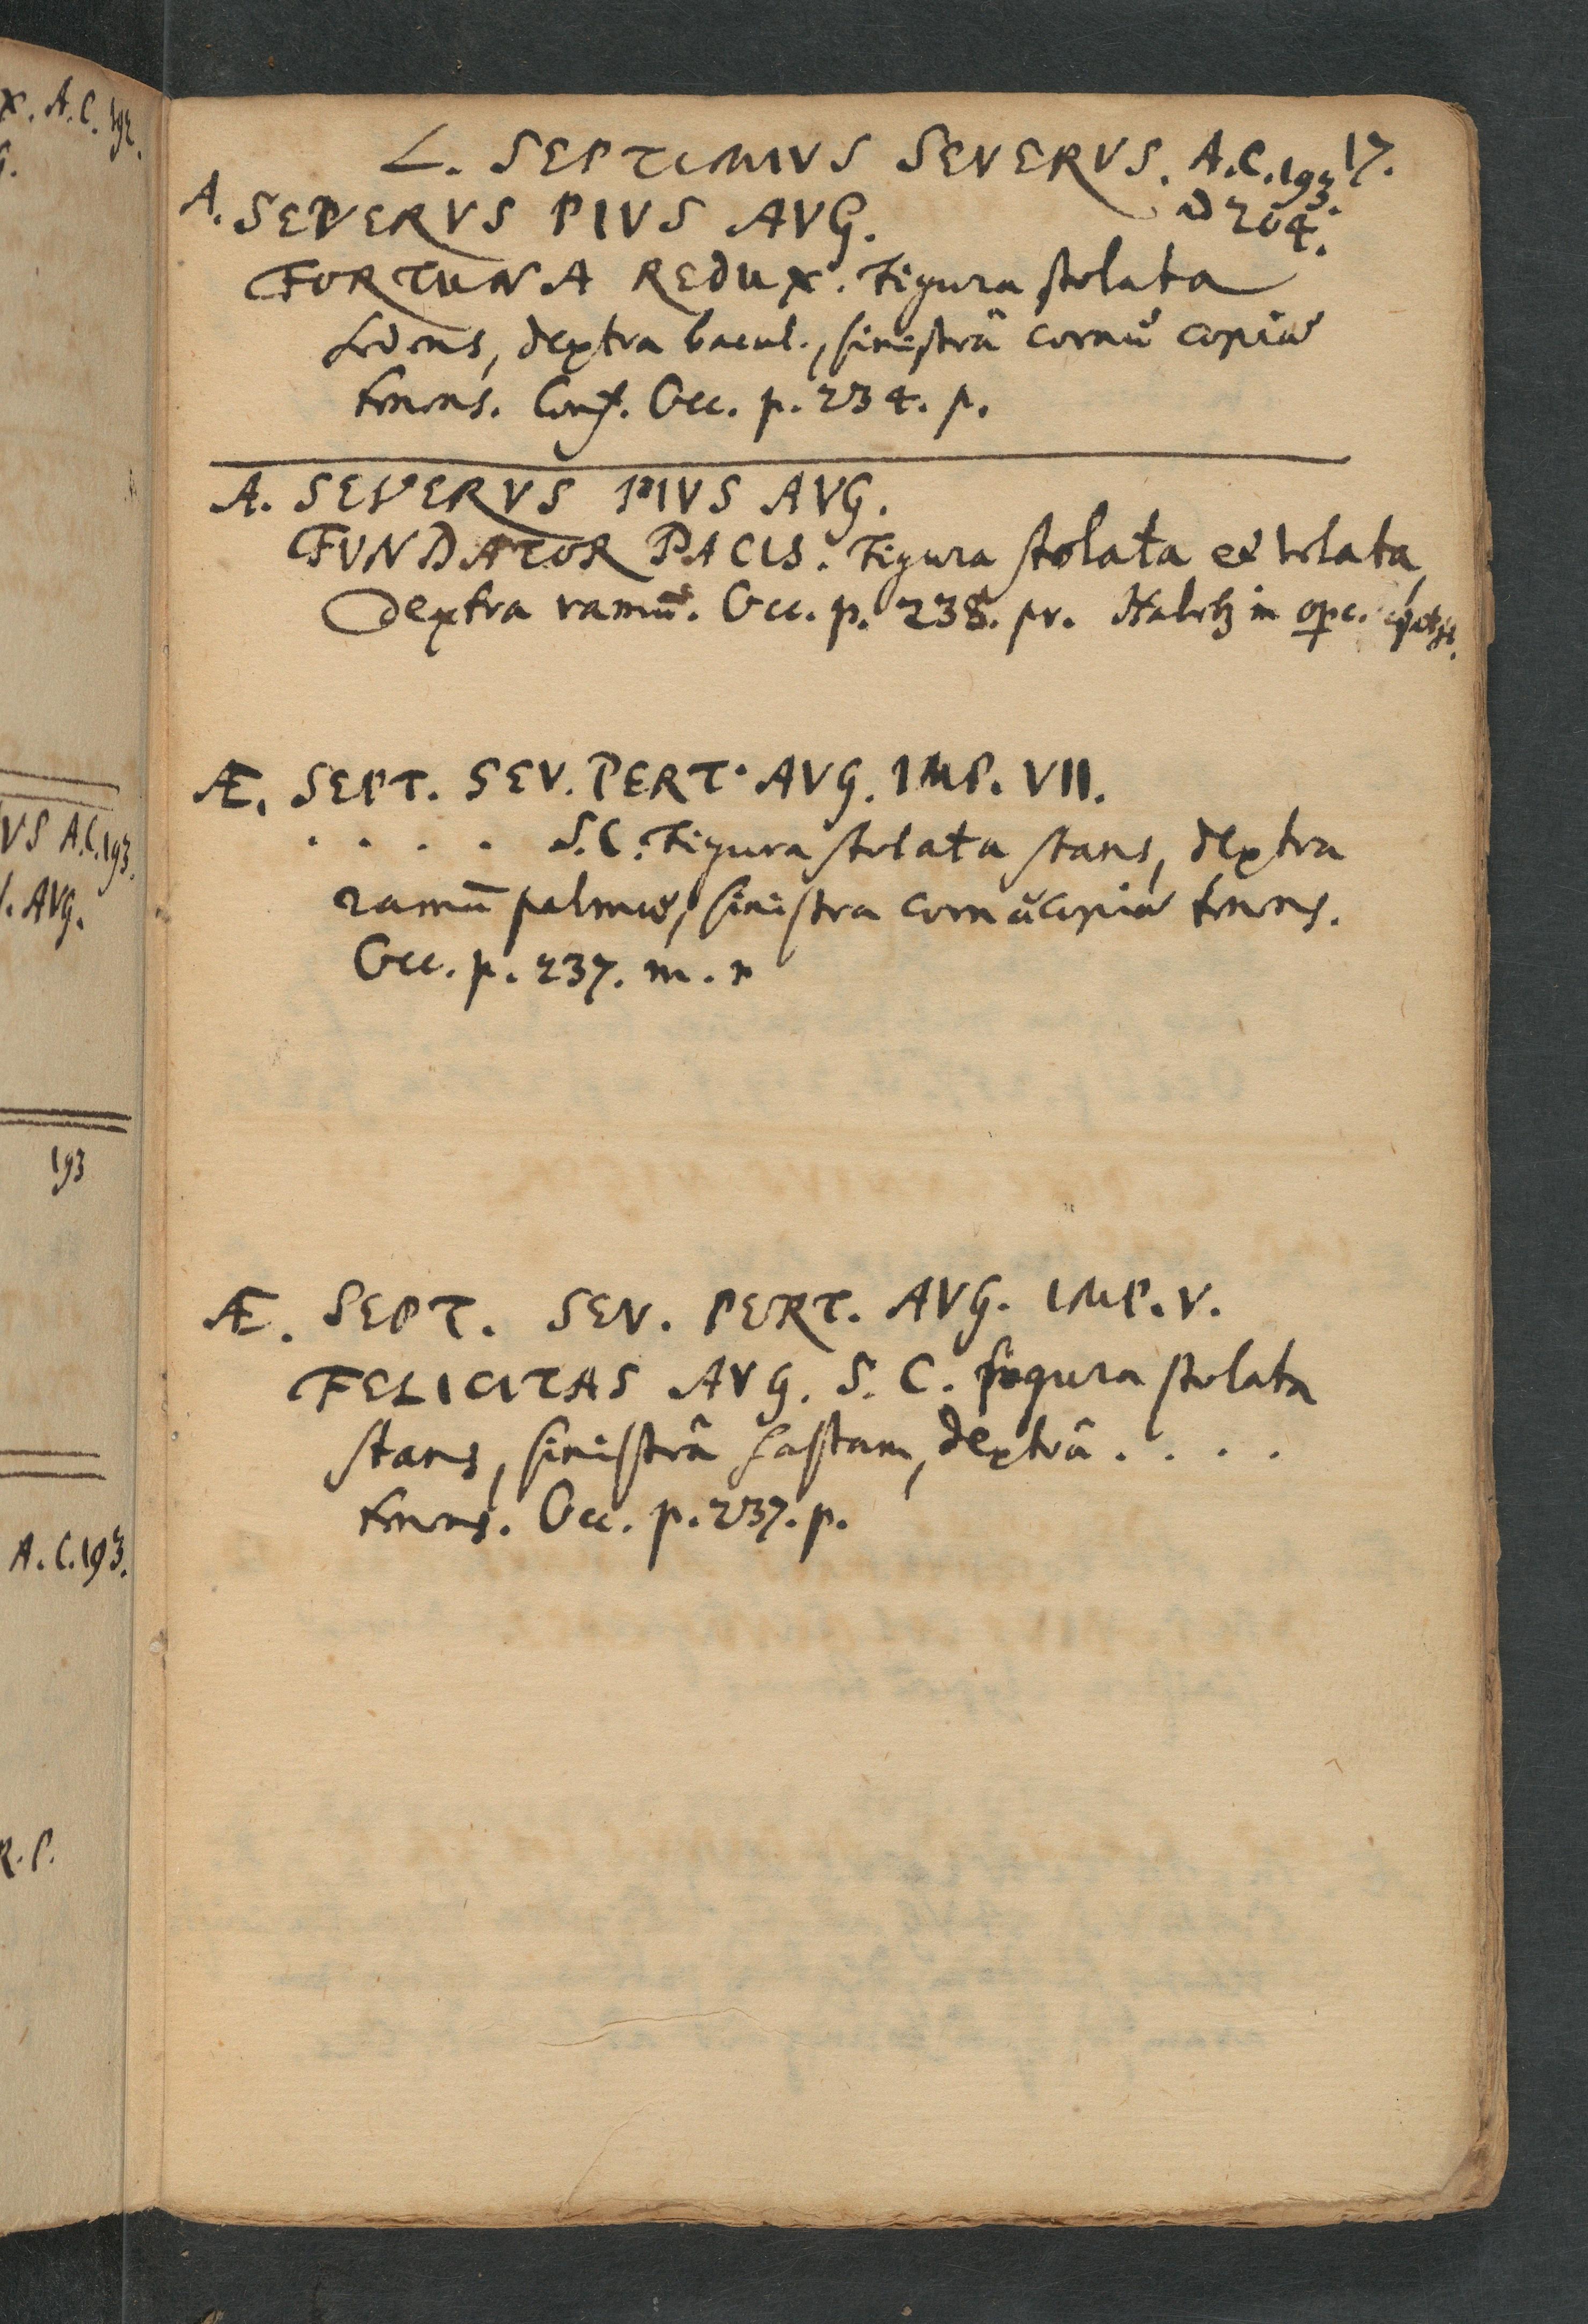 x. A.C. 192.
G.
VS A.C. 193.
. AVG.
193
A.C. 193.
R. P.
L. SEPTIMIVS SEVERVS. A.C. 193. 17.
ad 204.
A. SEVERVS PIVS AVG.
FORTUNA REDUX. Figura stolata
sedens, dextra bacul., sinistrâ cornu copiæ
tenens. Conf. Occ. p. 234. p.
A. SEVERVS PIVS AVG.
FUNDATOR PACIS. Figura stolata et velata,
dextra ramū. Occ. p. 238. pr. in opc.
Æ. SEPT. SEV. PERT. AVG. IMP. VII.
. . . . S.C. Figura stolata stans, dextra
ramū palmæ, sinistra cornucopiæ tenens.
Occ. p. 237. m. r
Æ. SEPT. SEV. PERT. AVG. IMP. V.
FELICITAS AVG. S. C. figura stolata
stans, sinistrâ hastam, dextrâ . . . .
tenens. Occ. p. 237. p.